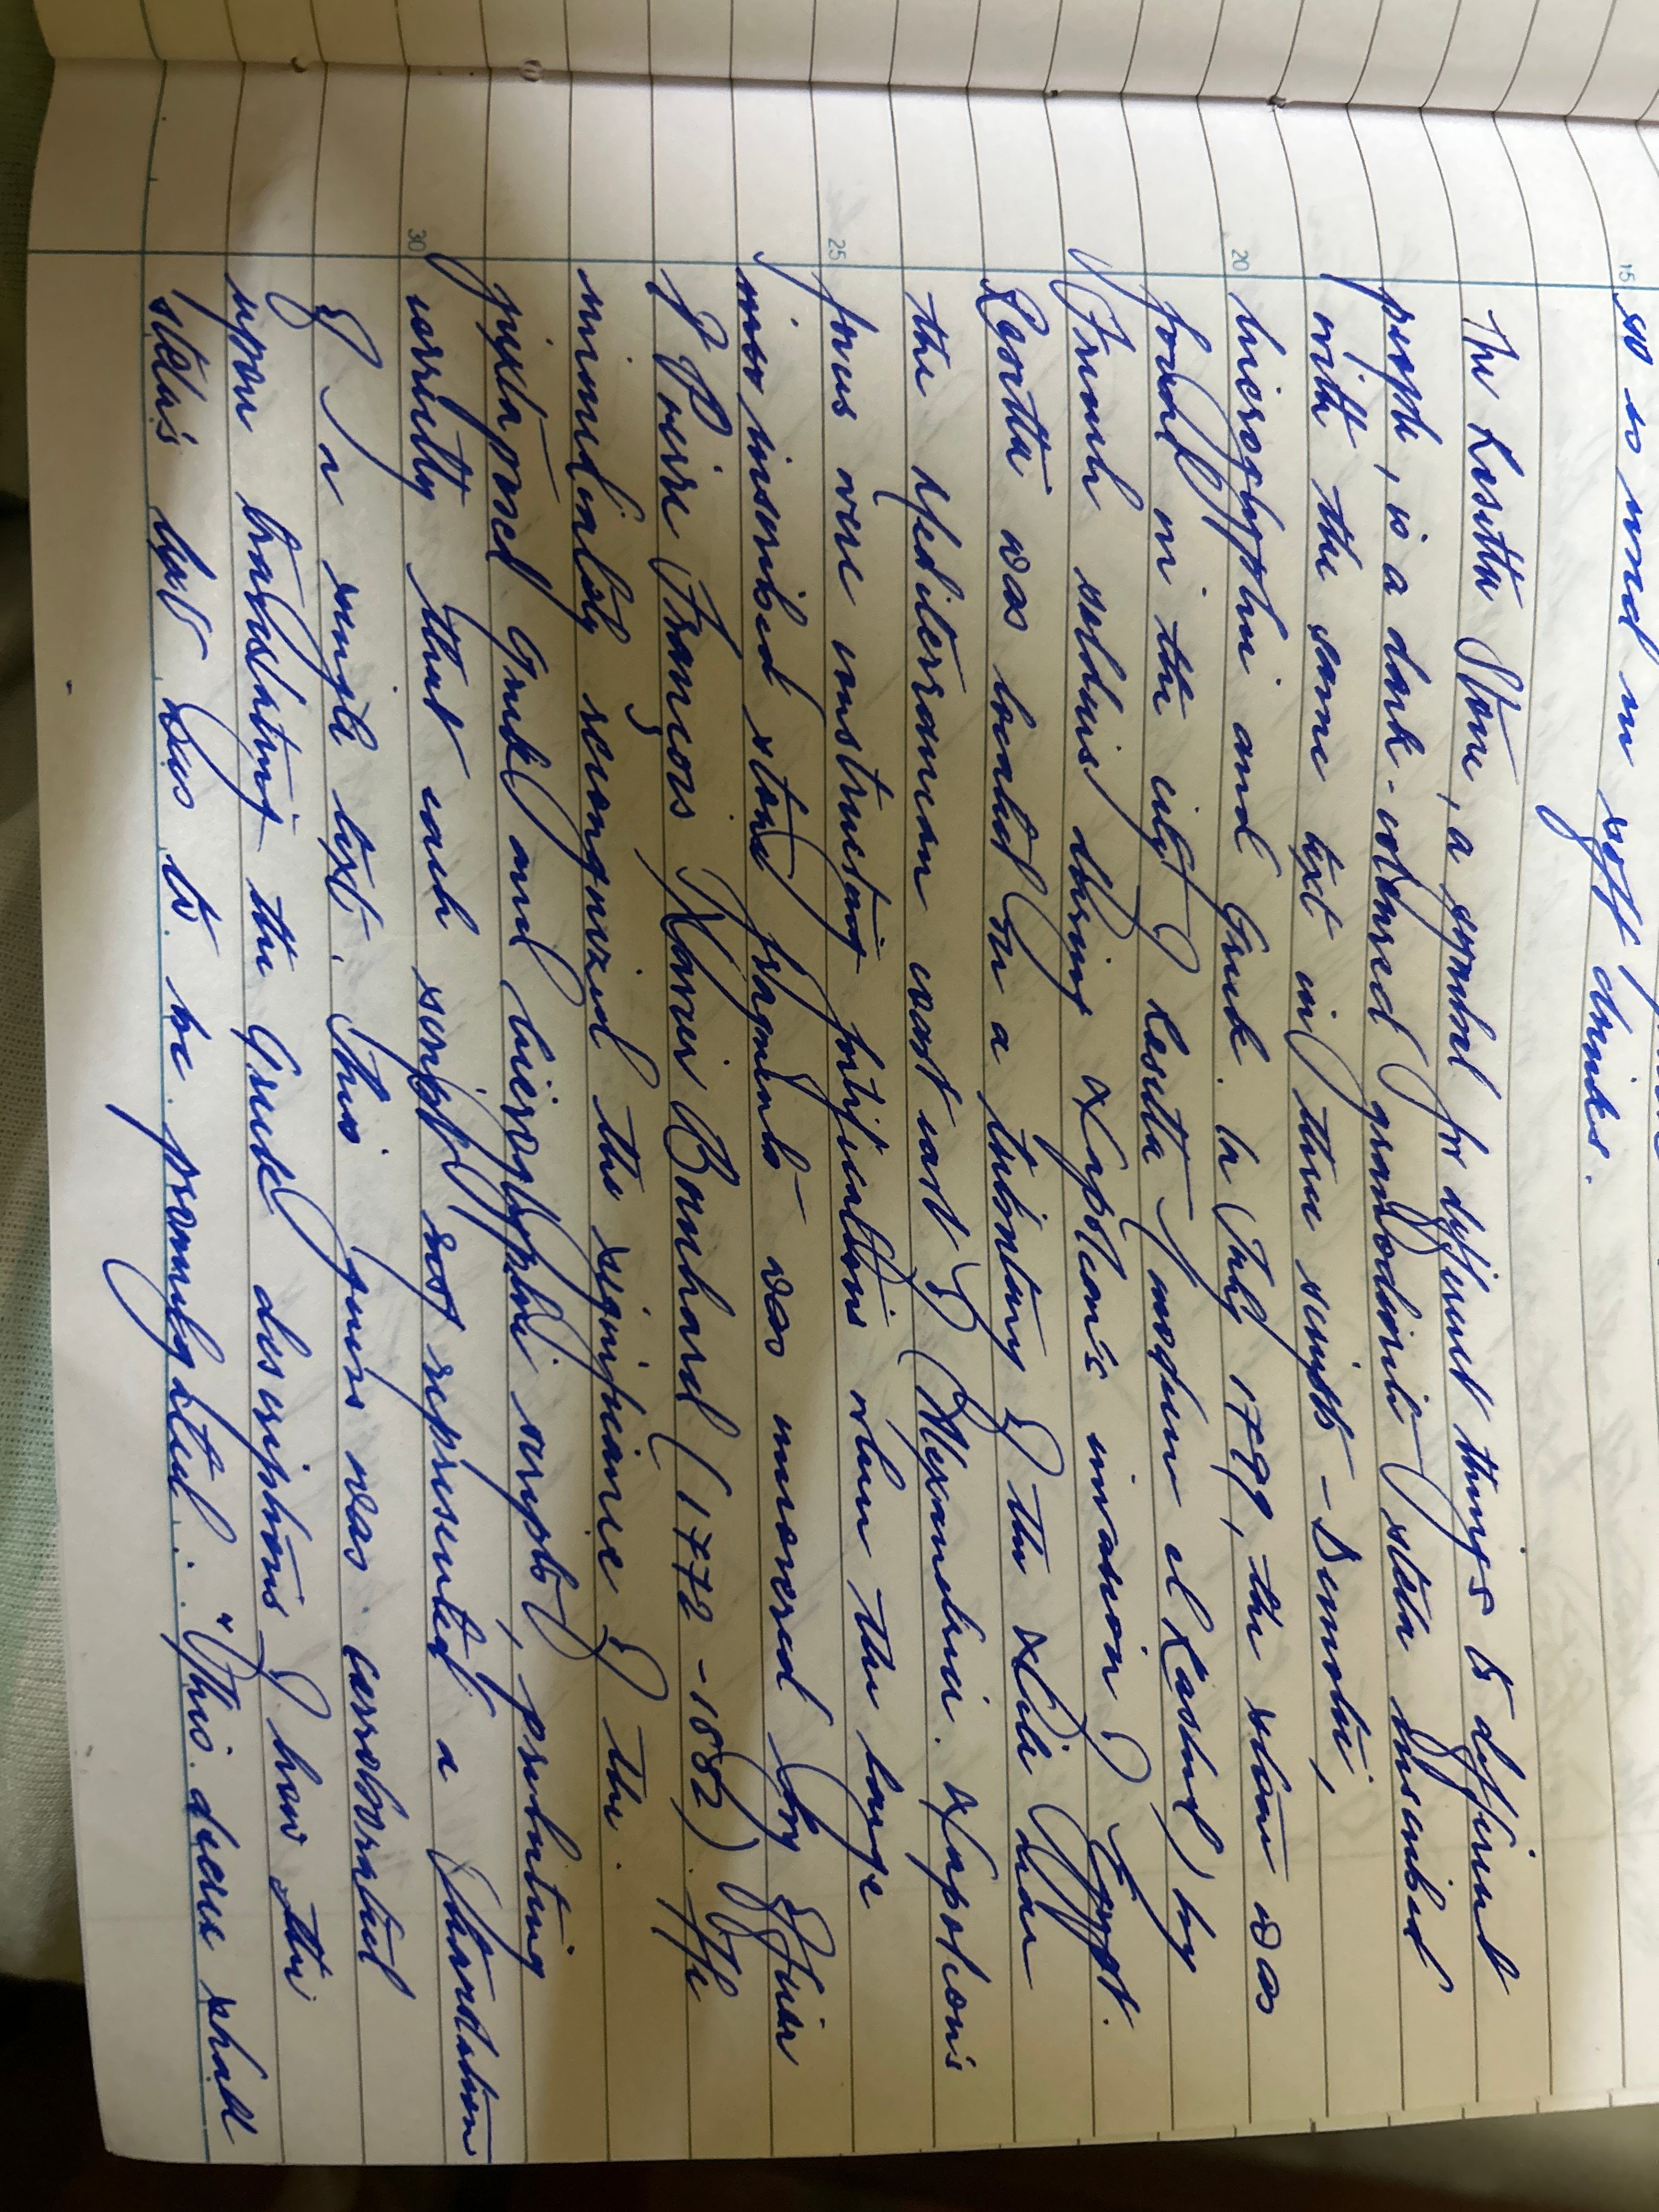 so so used in soft drinks.
The Rosetta Stone, a symbol for different things to different
people, is a dark-coloured granodiorite stela inscribed
with the same text in three scripts - Demotic,
hieroglyphic and Greek. In July 1799, the stone was
found in the city of Rosetta (modern el Rashid) by
French soldiers during Napoleon's invasion of Egypt.
Rosetta was located on a tributary of the Nile near
the Mediterranean coast east of Alexandria. Napoleon's
forces were constructing fortifications when the large
inscribed stone fragment was uncovered by Officer
Pierre François Xavier Bouchard (1772-1882). He
immediately recongnized the significance of the
juxtaposed Greek and hieroglyphic scripts, presuting
correctly that each script represented a translation
of a single text. This guess was corroborated
upon translating the Greek descriptions of how the
stela's was to be promulgated: "This decree shall